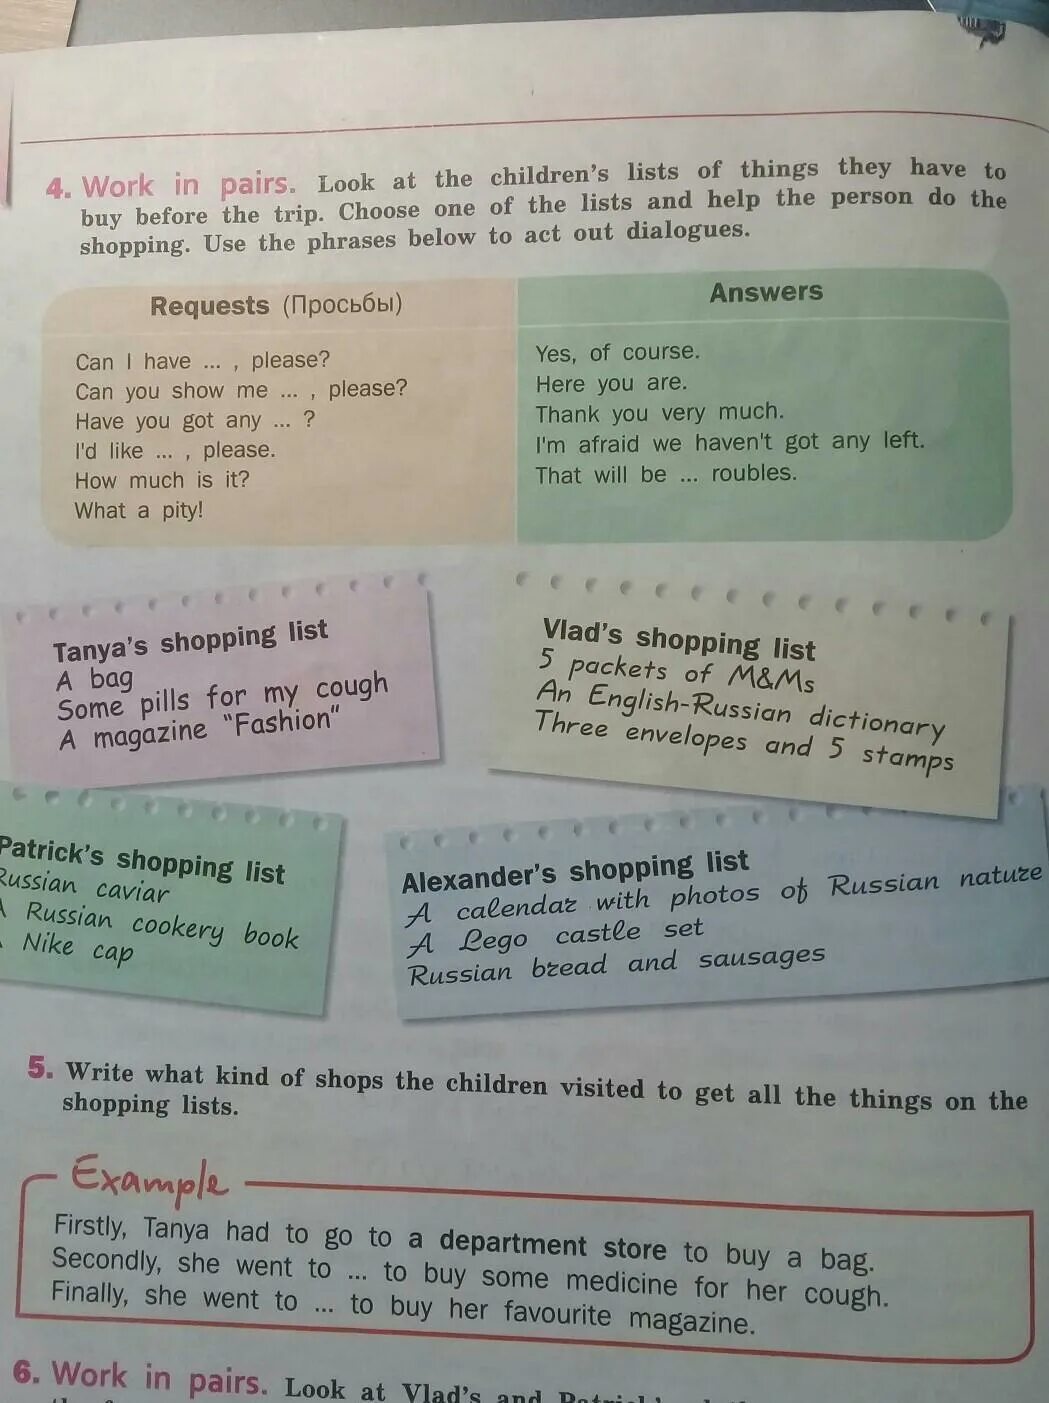 4. Work in pairs. Look at the children's lists of things they have to
buy before the trip. Choose one of the lists and help the person do the
shopping. Use the phrases below to act out dialogues.
Requests (Просьбы)
Can I have ... , please?
Can you show me ... , please?
Have you got any ... ?
I'd like ... , please.
How much is it?
What a pity!
Answers
Yes, of course.
Here you are.
Thank you very much.
I'm afraid we haven't got any left.
That will be ... roubles.
Tanya's shopping list
A bag
Some pills for my cough
A magazine "Fashion"
Vlad's shopping list
5 packets of M&Ms
An English-Russian dictionary
Three envelopes and 5 stamps
Patrick's shopping list
Russian caviar
A Russian cookery book
A Nike cap
Alexander's shopping list
A calendar with photos of Russian nature
A Lego castle set
Russian bread and sausages
5. Write what kind of shops the children visited to get all the things on the
shopping lists.
Example
Firstly, Tanya had to go to a department store to buy a bag.
Secondly, she went to ... to buy some medicine for her cough.
Finally, she went to ... to buy her favourite magazine.
6. Work in pairs. Look at Vlad's and